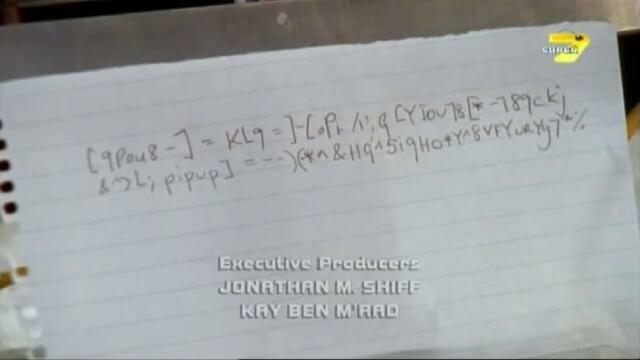 SUPER 7
[qpou8-] = KLq = ]-[oPr /i1,q [YIOU]8[*-789ckj
&^>L; pipup] = ---)(*^&Hq^5iqHo*Y^8VFYURYg7Y*%
Executive Producers
JONATHAN M. SHIFF
KAY BEN M'RAD